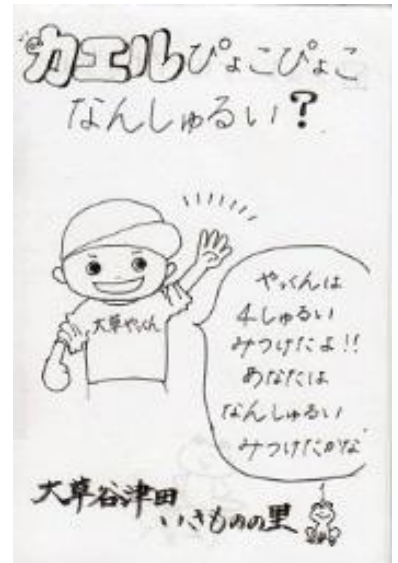 カエルぴょこぴょこ
なんしゅるい？
大草やっくん
やっくんは
4しゅるい
みつけたよ!!
あなたは
なんしゅるい
みつけたかな
大草谷津田
いきものの里